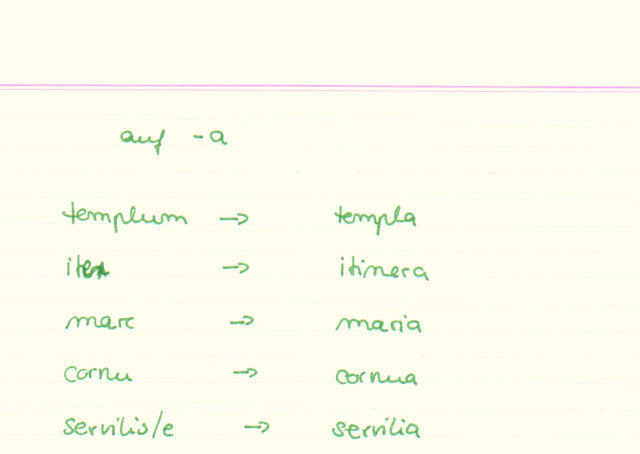 auf -a
templum → templa
iter → itinera
mare → maria
cornu → cornua
servilis/e → servilia